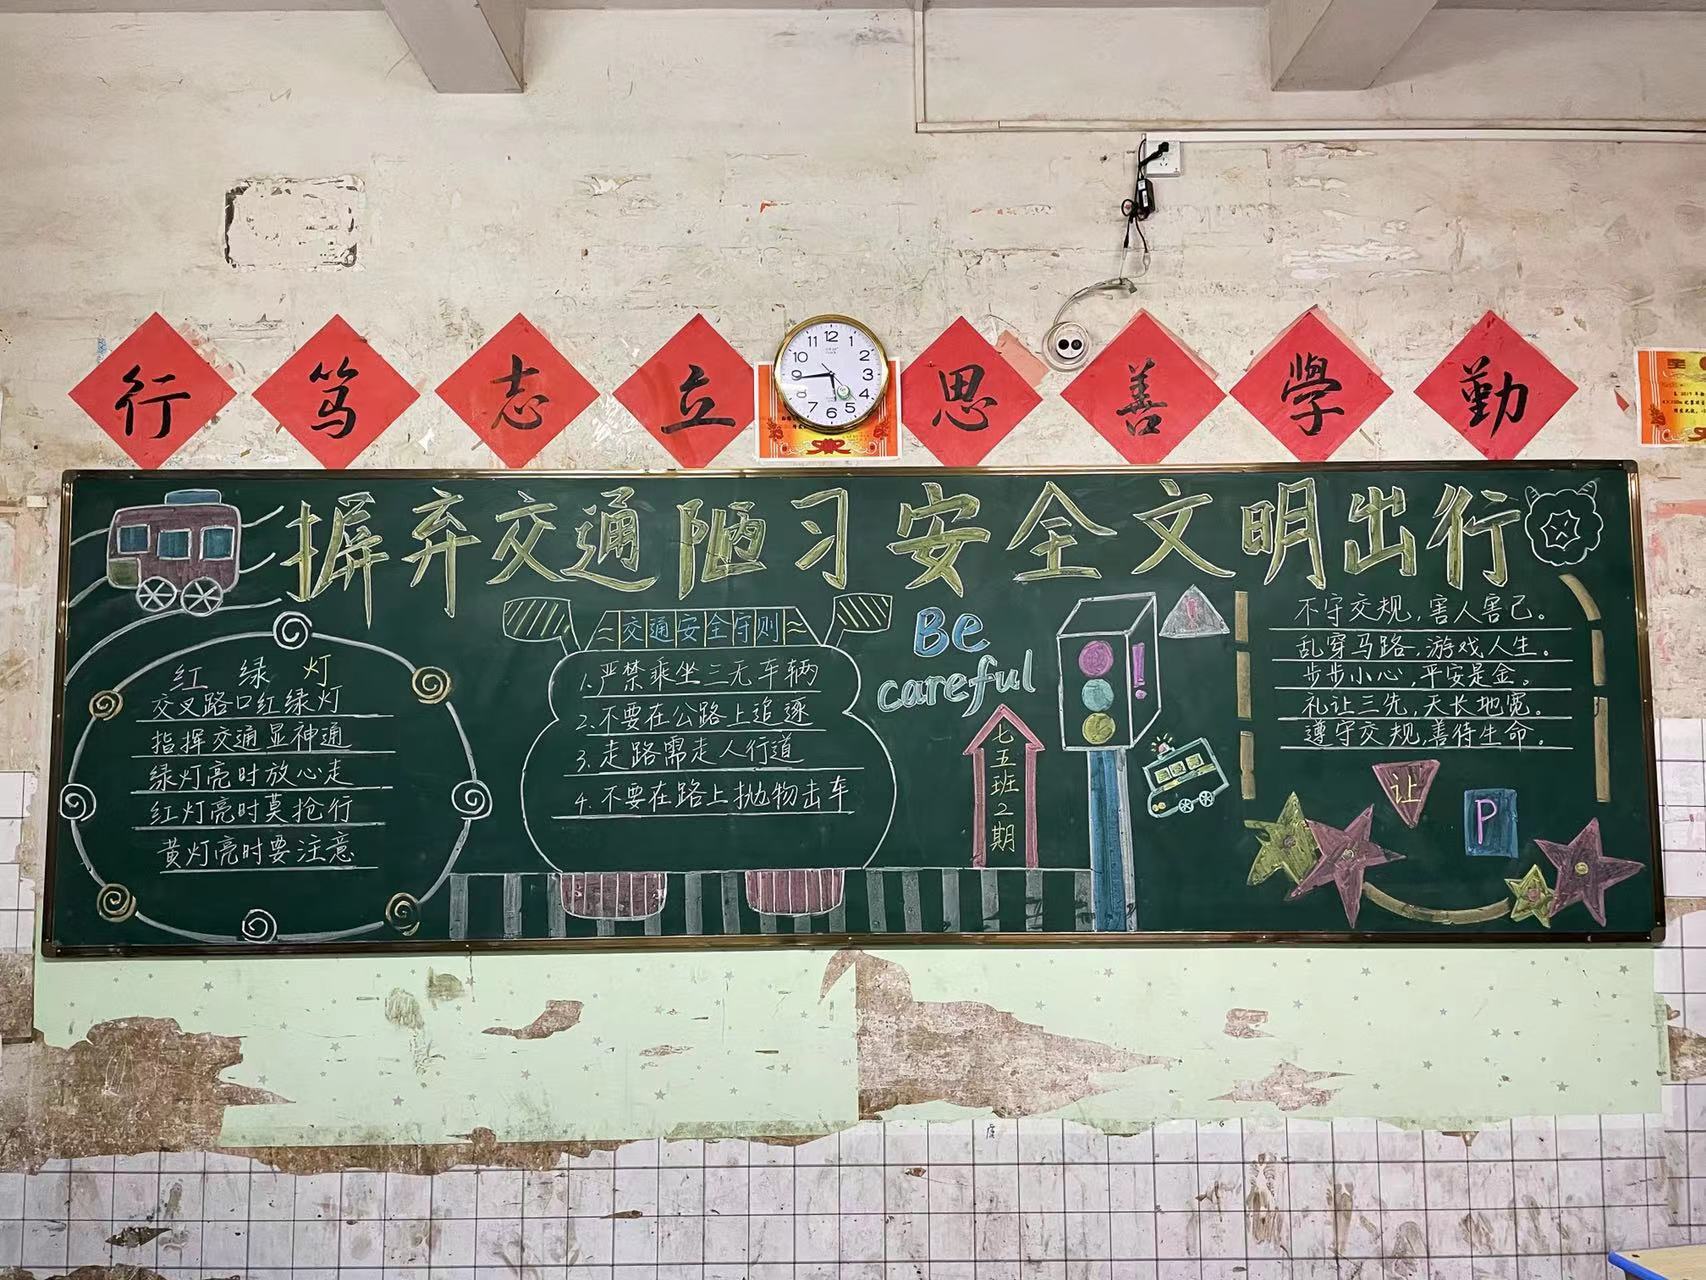 行 笃 志 立 思 善 學 勤
摒弃交通陋习安全文明出行
红 绿 灯
交叉路口红绿灯
指挥交通显神通
绿灯亮时放心走
红灯亮时莫抢行
黄灯亮时要注意
交通安全守则
1.严禁乘坐三无车辆
2.不要在公路上追逐
3.走路需走人行道
4.不要在路上抛物击车
Be
careful
七五班2期
不守交规,害人害己。
乱穿马路,游戏人生。
步步小心,平安是金。
礼让三先,天长地宽。
遵守交规,善待生命。
让
P